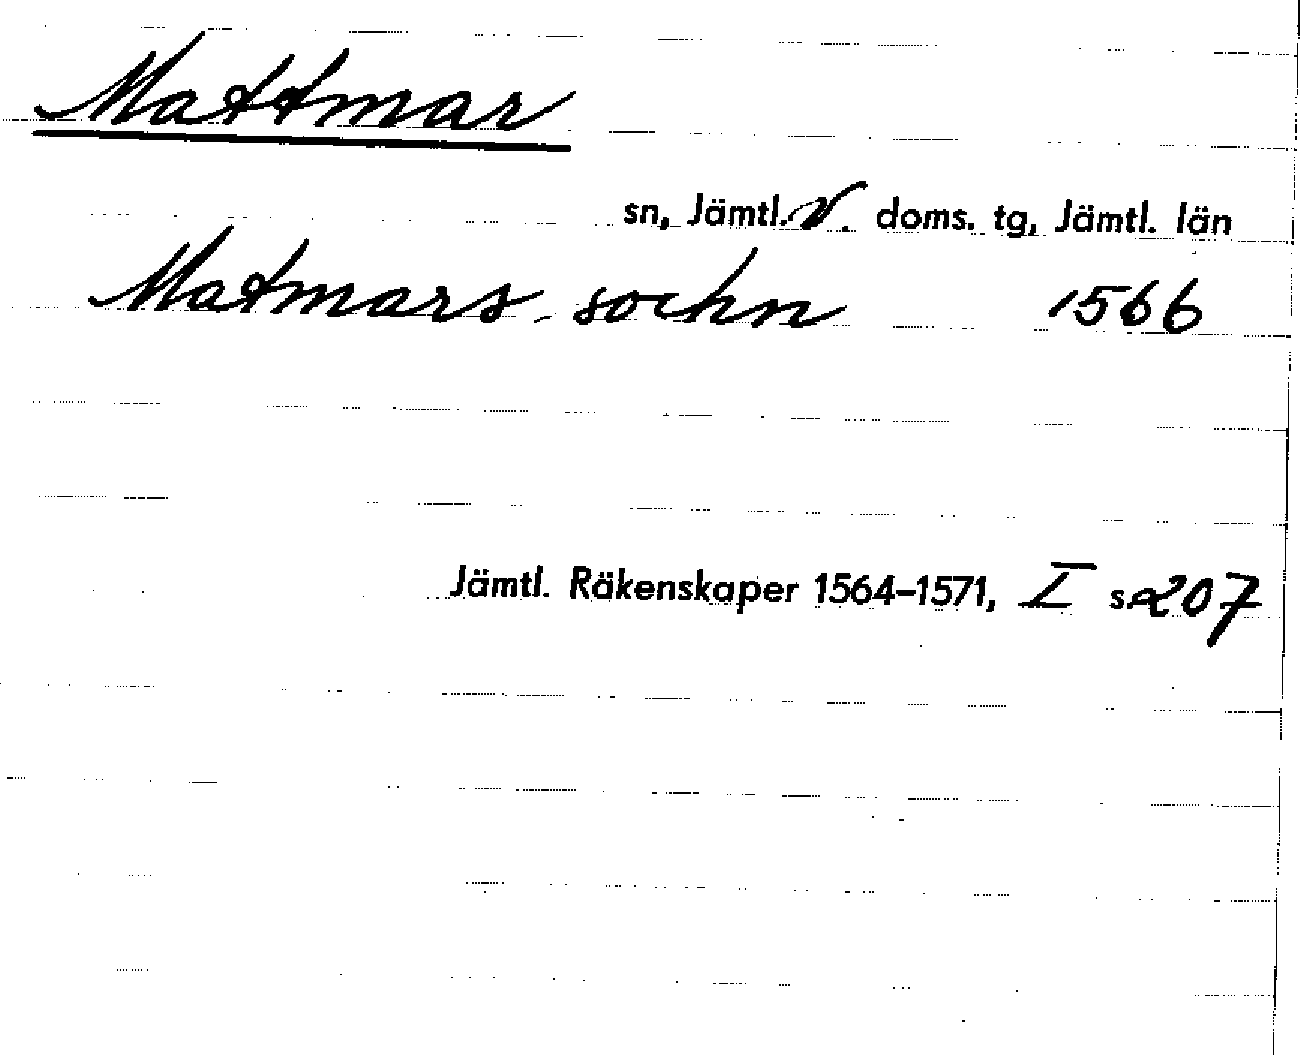 Mattmar
sn, Jämtl. V. doms. tg, Jämtl. län
Matmars sochn 1566
Jämtl. Räkenskaper 1564–1571, I s. 207